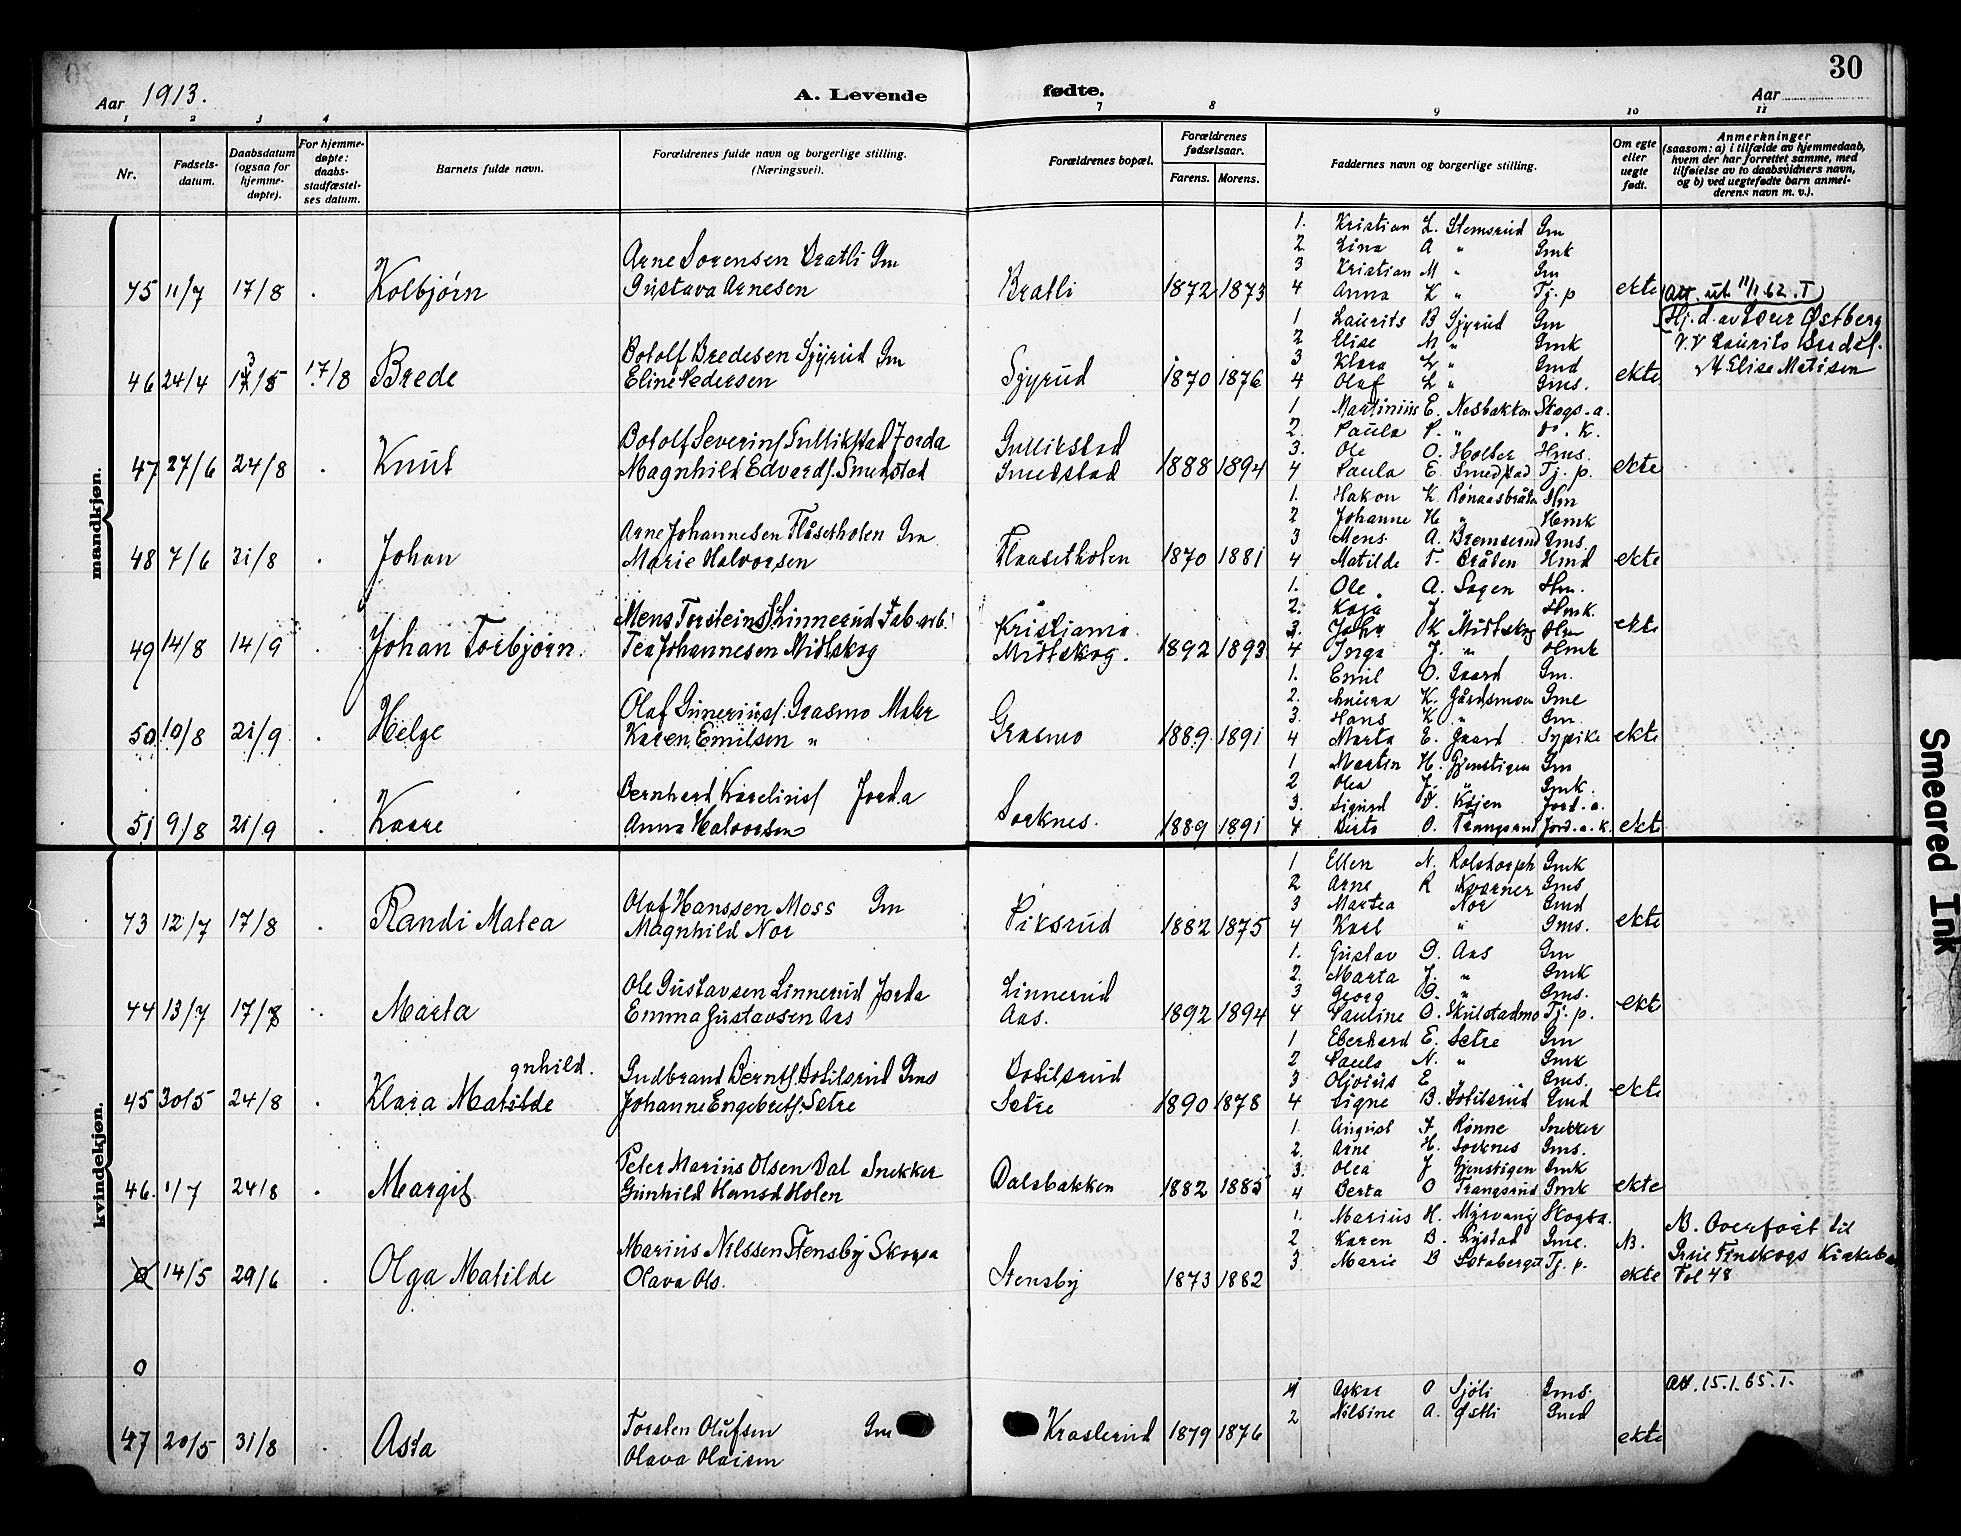 30
Aar 1913. A. Levende fødte. Aar
1 2 3 4 7 8 9 10 11
Nr. Fødsels-datum. Daabsdatum (ogsaa for hjemme-døpte). For hjemme-døpte: daabs-stadfæstel-ses datum. Barnets fulde navn. Forældrenes fulde navn og borgerlige stilling. (Næringsvei). Forældrenes bopæl. Forældrenes fødselsaar. Farens. Morens. Faddernes navn og borgerlige stilling. Om egte eller uegte født. Anmerkninger (saasom: a) i tilfælde av hjemmedaab, hvem der har forrettet samme, med tilføielse av to daabsvidners navn, og b) ved uegtefødte barn anmel-derens navn m. v.).
mandkjøn.
1. Kristian L. Stemsrud Gm
2 Lina A " Gmk
Arne Sorensen Bratli Gm
3 Kristian M " Gm
45 11/7 17/8 . Kolbjørn Gustava Arnesen Bratli 1872 1873 4 Anna K " Tj. p ekte Att. ut. 11/1 62. T
1 Laurits B Sjyrud Gm Hj. d. av Lærer Østberg
2 Elise M " Gmk V. V Laurits Bredes.
Botolf Bredesen Sjyrud Gm
3 Klara L " Gmd
46 24/4 13/5 17/8 Brede Eline Pedersen Sjyrud 1870 1876 4 Olaf L " Gms. ekte Elise Matisen
1 Martinius E. Nesbakken Skogs-a.
2. Paula P. " K.
Botolf Severins. Gullikstad Jorda Gullikstad
3. Ole O. Holter Hms.
47 27/6 24/8 . Knut Magnhild Edvards. Smedstad Smedstad 1888 1894 4 Paula E. Smedstad Tj. p. ekte
1. Hakon K. Rønaasbråten Hm
2 Johanne H " Hmk
Arne Johannesen Flåsetholen Gm
3 Mens A. Bremserud Gms.
48 7/6 21/8 . Johan Marie Halvorsen Flaasetholen 1870 1881 4 Matilde T. Bråten Hmd ekte
1. Ole A. Sagen Hm.
2. Kaja J. Hmk.
Mens Torsteins. Linnerud Fab. arb. Kristiania
3. Johs K Midtskog Hm ekte
49 14/8 14/9 . Johan Torbjørn. Tea Johannesen Midtskog Midtskog. 1892 1893 4 Inga J. " Hmk
1. Emil O. Gaard Gm.
2. K. Gårdsmoen Gme
Olaf Guneriuss. Grasmo Maler
3. Hans K " Gm
50 10/8 21/9 . Helge Karen Emilsen " Grasmo 1889 1891 4 Marta E. Gaard Sypike ekte
1 Martin H. Gjenstigen Gm
2 Olea J. " Gmk.
Bernhard Karelius Jorda
3. Sigurd O. Kojen Jord. a.
51 9/8 21/9 . Kaare Anna Halvorsen Sorknes. 1889 1891 4 Berta O. Trangsrud Jord. a. k. ekte
kvindekjøn.
1 Ellen N. Rolstorph Gmk
2 Arne R Kværner Gms
Olaf Hanssen Moss Gm
3 Martea Nor Gmd
43 12/7 17/8 . Randi Matea Magnhild Nor Piksrud 1882 1875 4 Karl " Gms. ekte
1. Gustav G. Aas Gm
2. Marta J. " Gmk
Ole Gustavsen Linnerud Jorda Linnerud
3 Georg G. " Gms.
44 13/7 17/8 Marta Emma Gustavsen Aas Aas. 1892 1894 4 Pauline O. Skulstadmo Tj. p. ekte
1 Eberhard E. Setre Gm
gnhild.
2 Paula N. " Gmk
Gudbrand Bernts. Botilsrud Gms Botilsrud
3 Olivius E " Gms.
45 30/5 24/8 . Klara Matilde Johanne Engebrets. Setre Setre 1890 1878 4 Signe B. Botilsrud Gmd ekte
1. August A Rønne Snekker
2. Arne H. Sorknes Gms.
Peter Marius Olsen Dal Snekker
3. Olea J Gjenstigen Gmk
46. 1/7 24/8 . Margit Gunhild Hansd Holen Dalsbakken 1882 1885 4 Berta O Trangsrud Gmk ekte
1. Marius H. Myrvang Skogsa.
2 Karen B. Rystad Gme. N. N. Overført til
Marius Nilssen Stensby Skogsa
3. Marie B Tj. p. Grue Finskogs Kirkebok
14/5 29/6 . Olga Matilde Olava Ols. Stensby 1873 1882 ekte Fol 48
0
1 Askar O Sjøli Gms. Att. 15.1.65. T.
2 Nilsine A. Østli Gmd
Torsten Olufsen Gm
47 20/5 31/8 . Asta Olava Olaisen Kraslerud 1879 1876 ekte
Smeared Ink